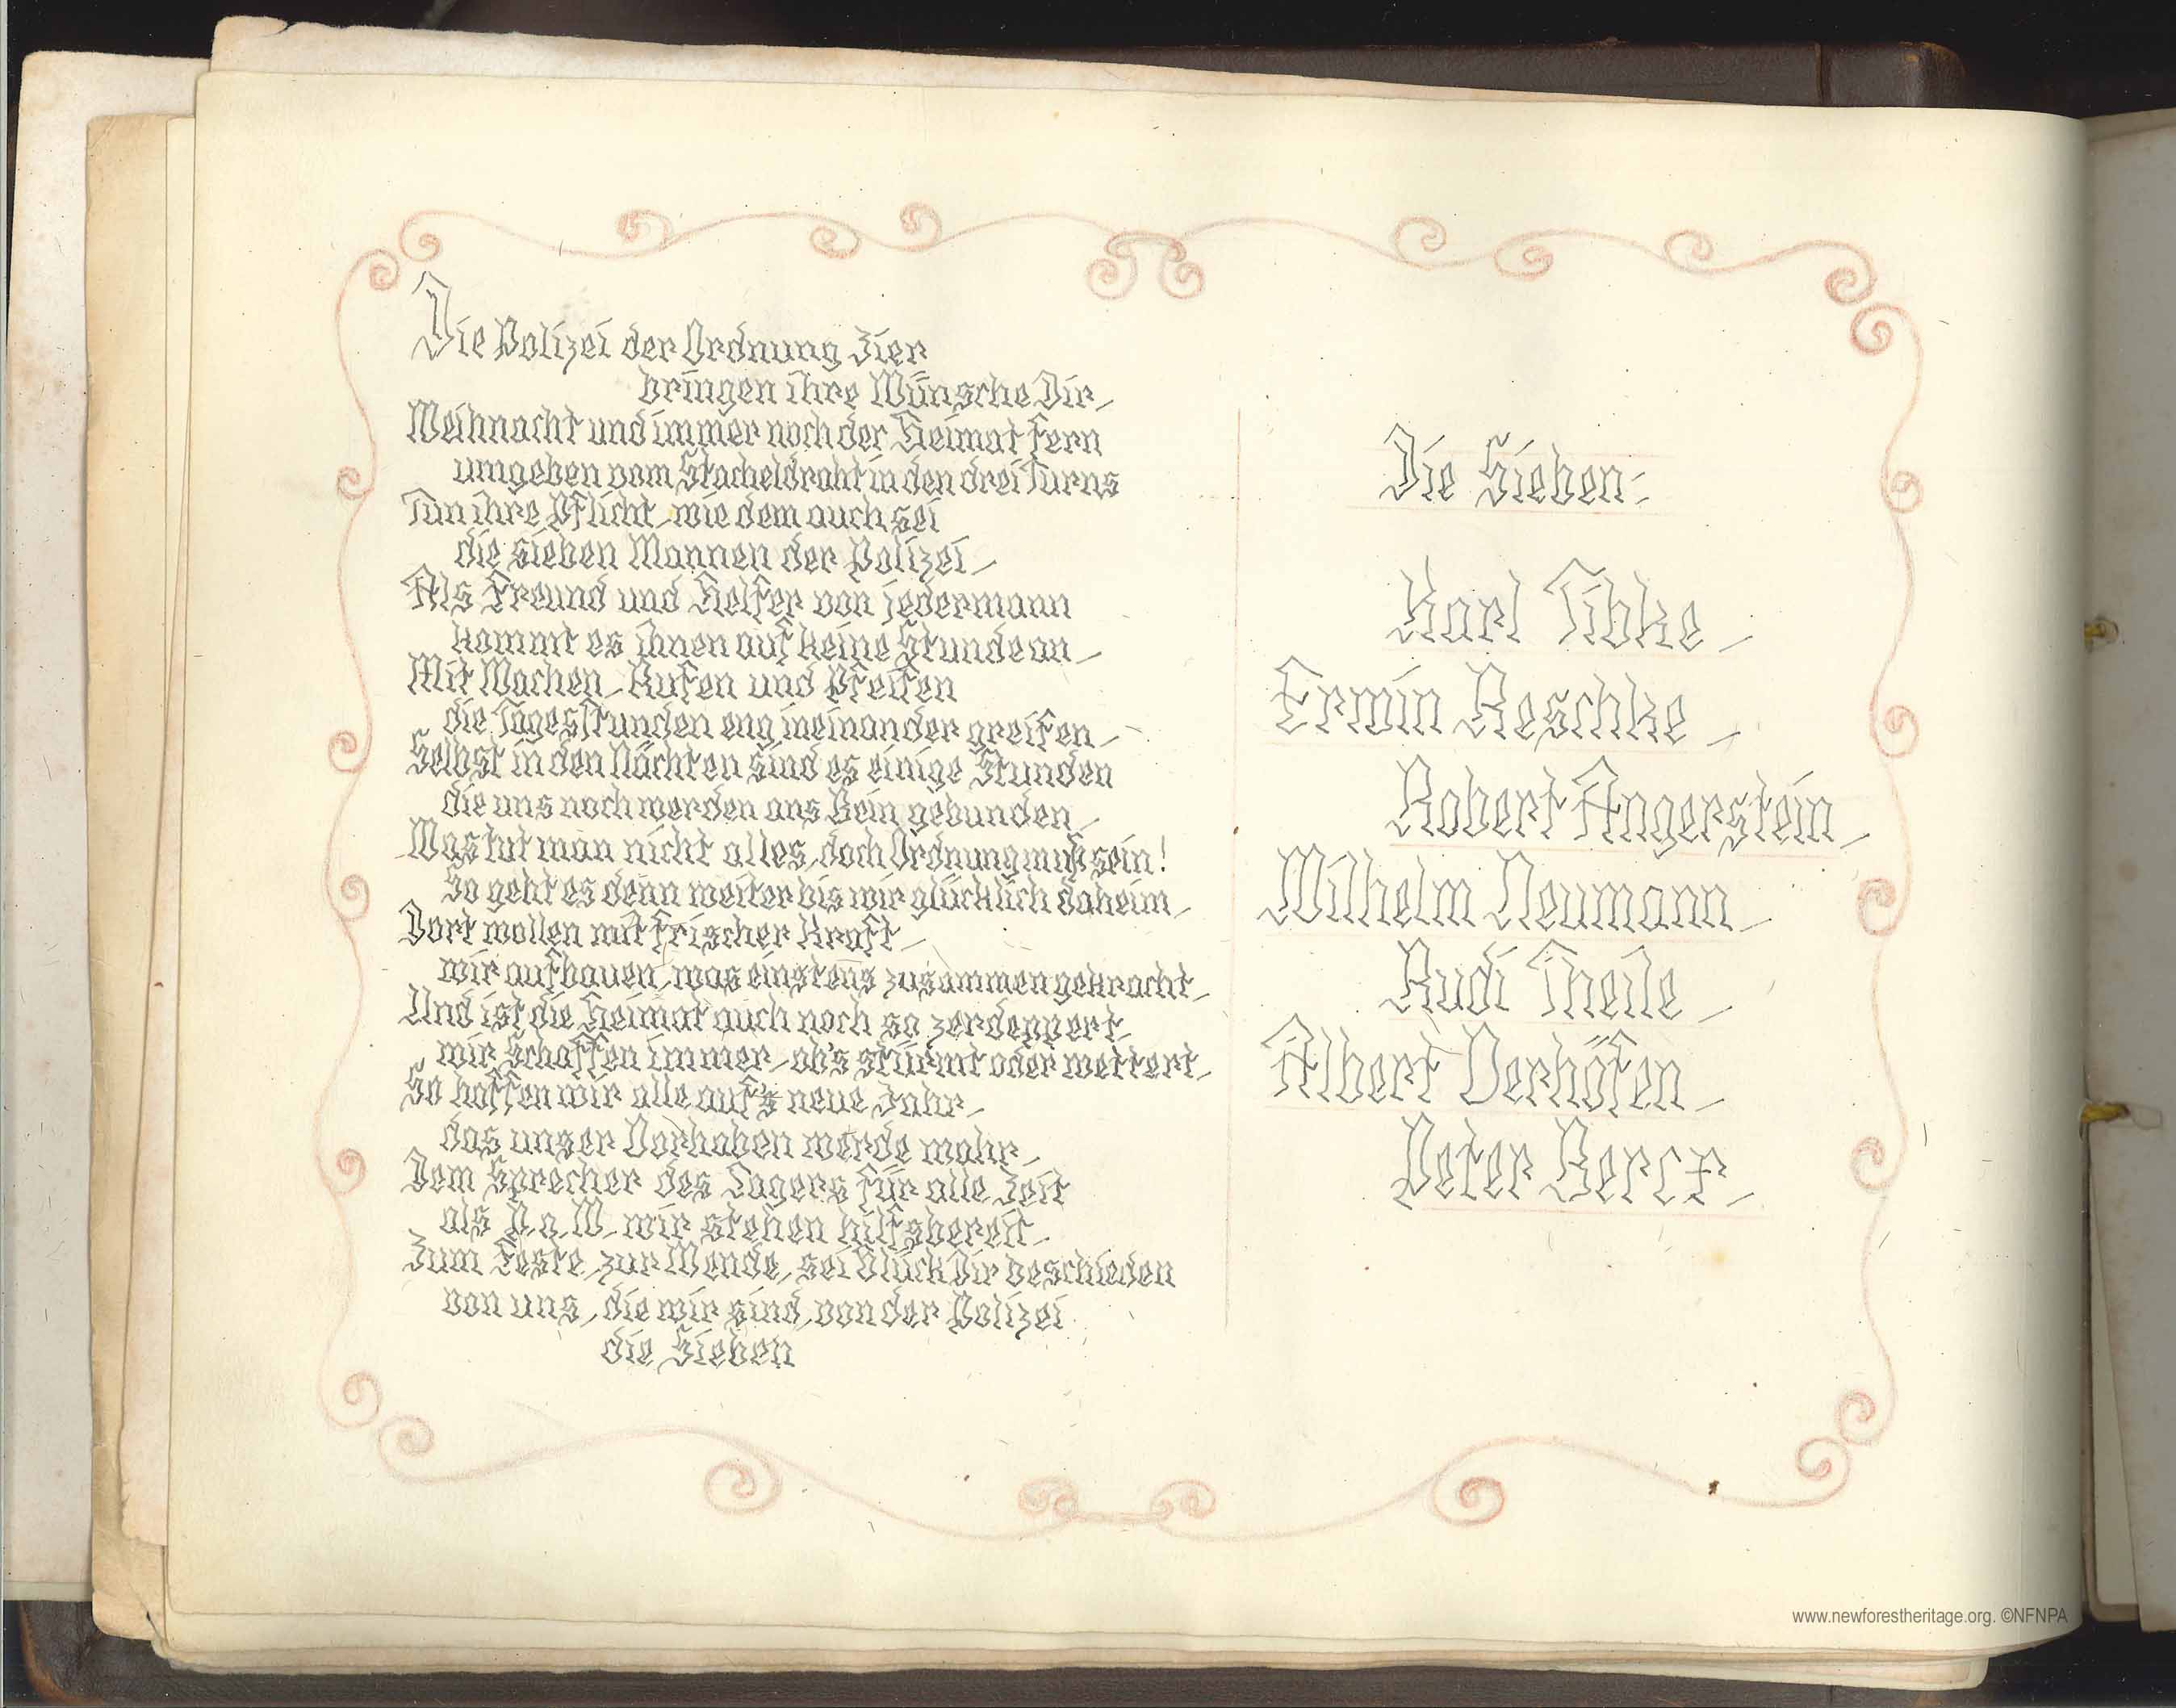 Die Polizei der Ordnung Zier
bringen ihre Wünsche Dir,
Weihnacht und immer noch der Heimat fern
umgeben vom Stacheldraht in den drei Turns
Tun ihre Pflicht, wie dem auch sei
die sieben Mannen der Polizei,
Als Freund und Helfer von jedermann
kommt es ihnen auf keine Stunde an,
Mit Wachen, Rufen und Pfeifen
die Tagesstunden eng ineinander greifen,
Selbst in den Nächten sind es einige Stunden
die uns noch werden ans Bein gebunden,
Was tut man nicht alles, doch Ordnung muß sein!
So geht es denn weiter bis wir glücklich daheim,
Dort wollen mit frischer Kraft,
wir aufbauen, was einstens zusammengekracht,
Und ist die Heimat auch noch so zerdeppert,
wir schaffen immer, ob's stürmt oder wettert,
So hoffen wir alle auf's neue Jahr,
das unser Vorhaben werde wahr,
Dem Sprecher des Lagers für alle Zeit
als P.o.W. wir stehen hilfsbereit.
Zum Feste, zur Wende, sei Glück Dir beschieden
von uns, die wir sind, von der Polizei
die Sieben
Die Sieben:
Karl Tibke,
Erwin Reschke,
Robert Angerstein,
Wilhelm Neumann,
Rudi Theile,
Albert Verhöfen,
Peter
www.newforestheritage.org. ©NFNPA